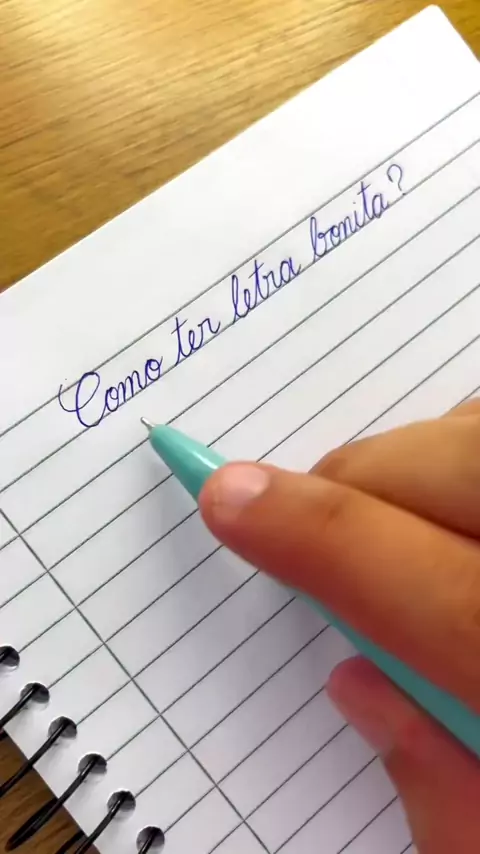 Como ter letra bonita?